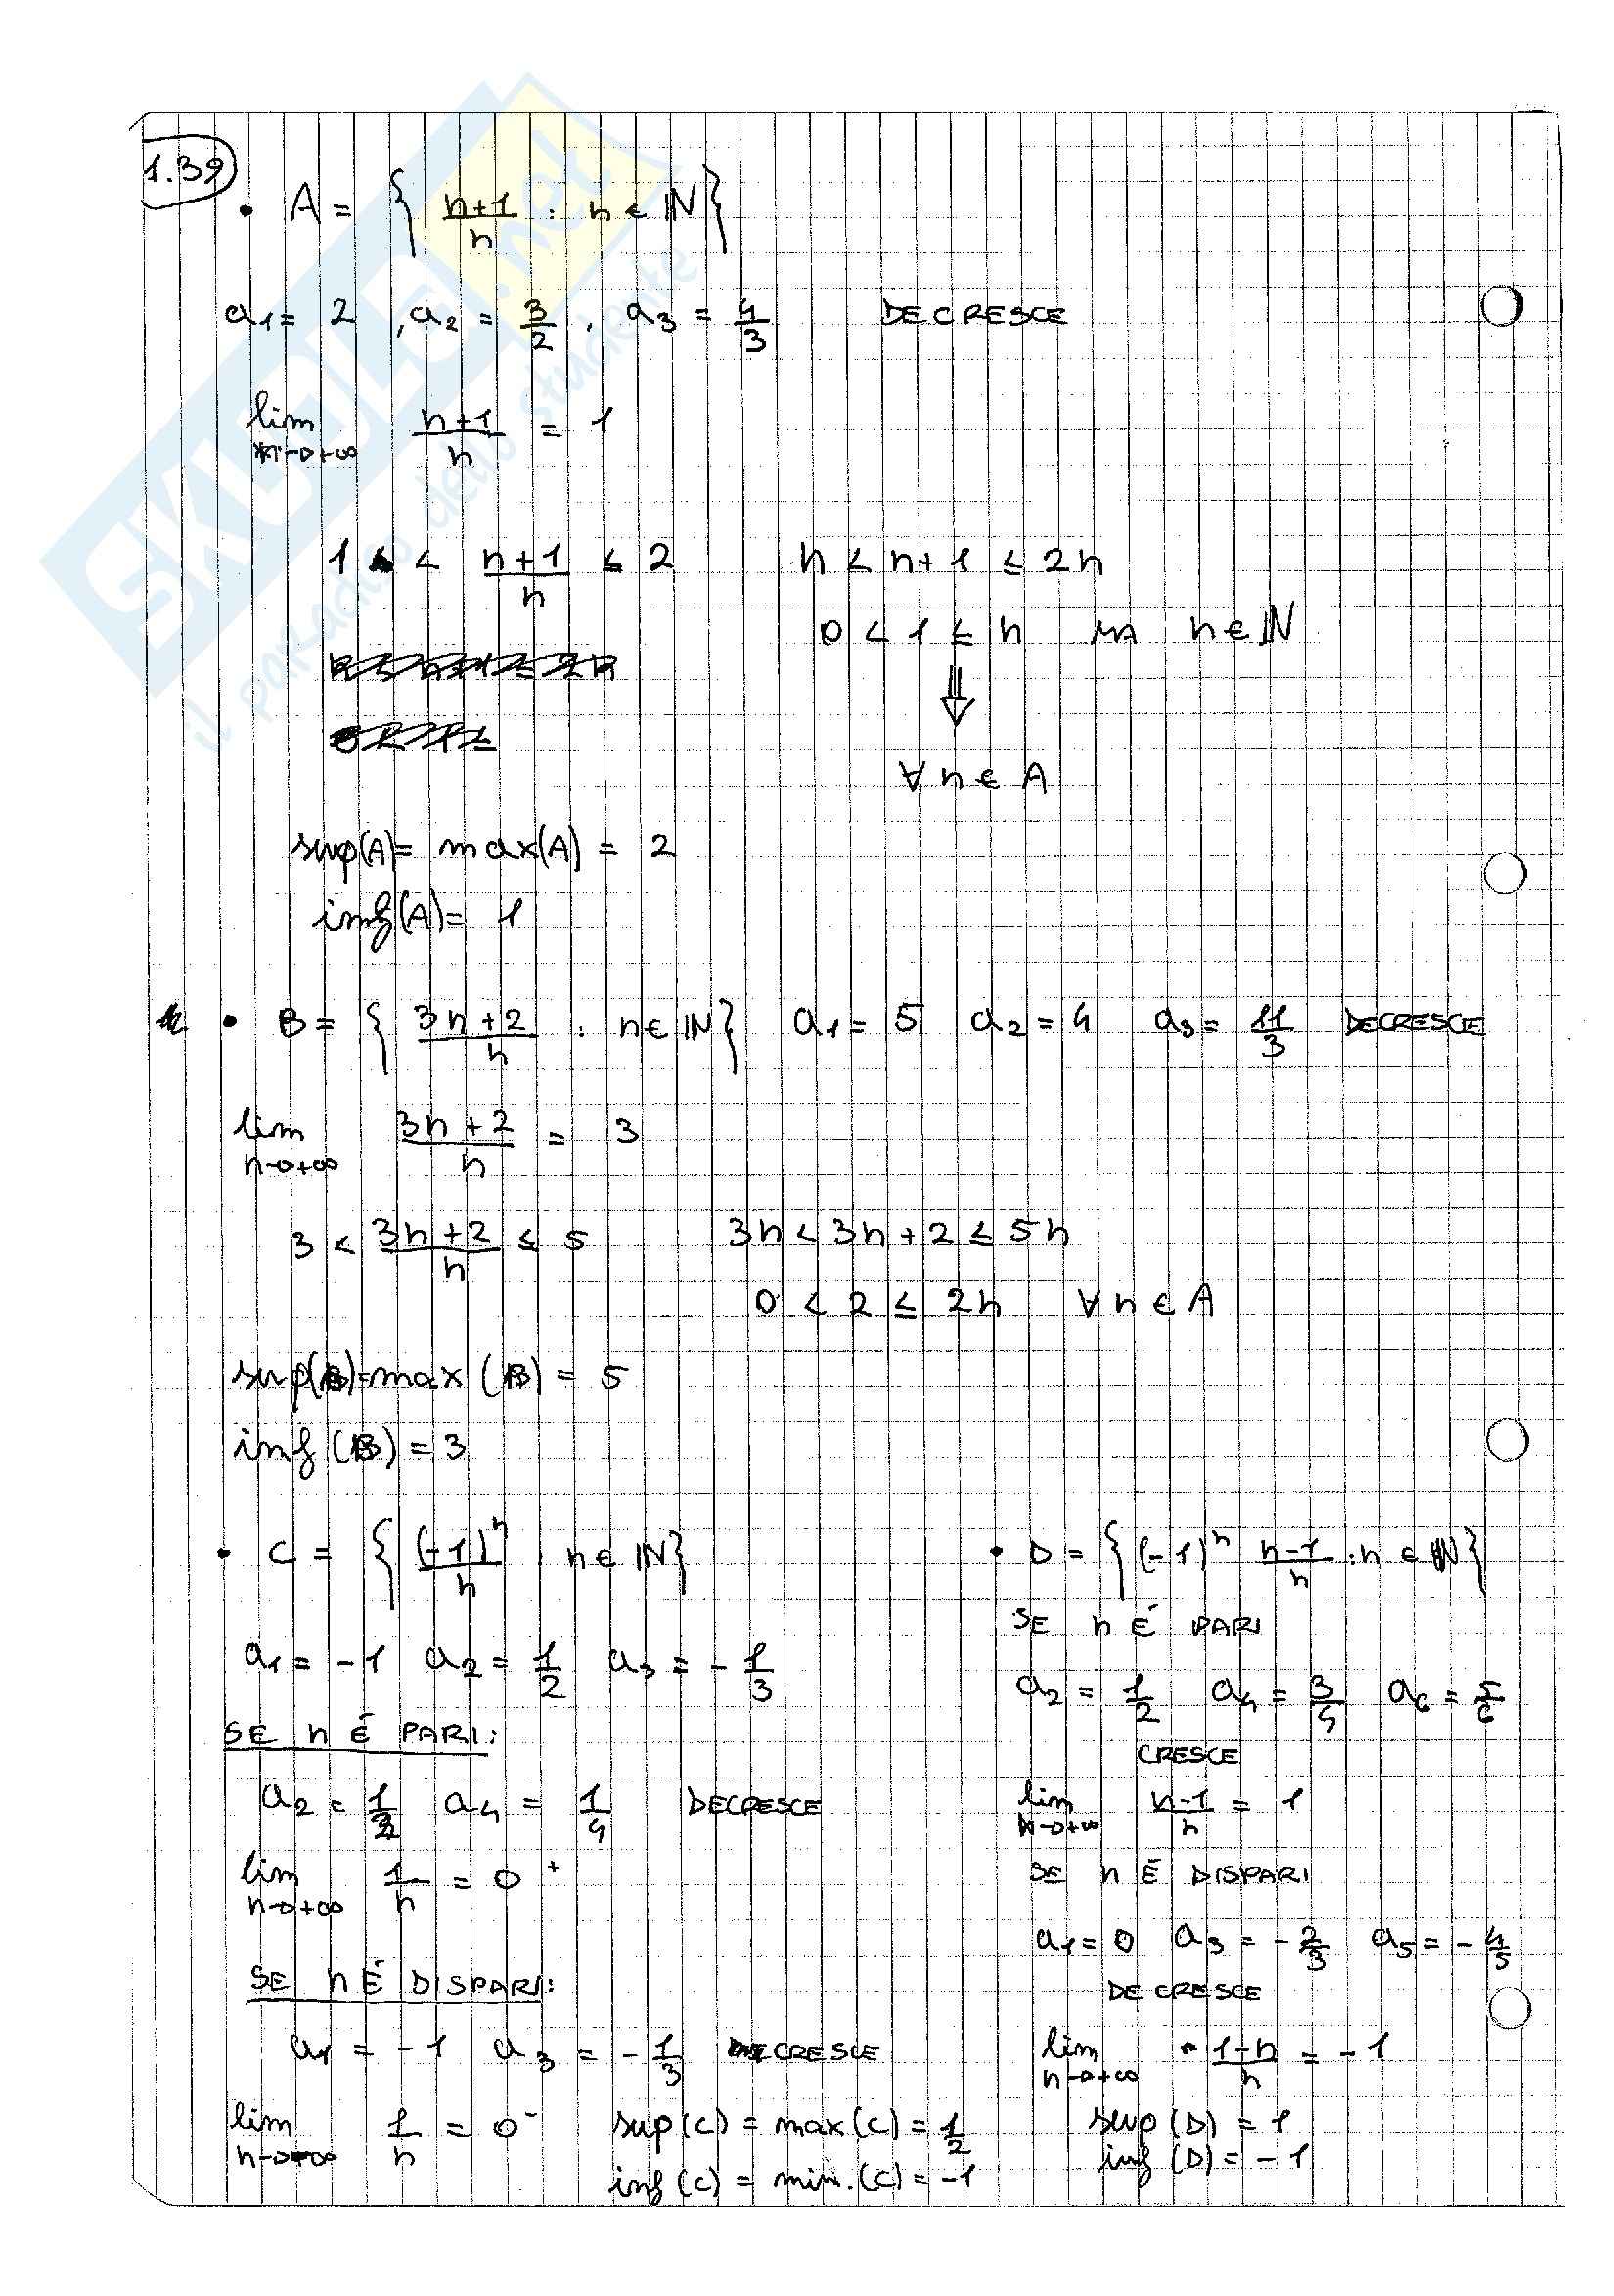 1.39
• A = { (n+1)/n : n ∈ ℕ }
a₁ = 2 , a₂ = 3/2 , a₃ = 4/3 DECRESCE
lim n→+∞ (n+1)/n = 1
1 < (n+1)/n ≤ 2 n < n+1 ≤ 2n
0 < 1 ≤ n n ∈ ℕ
⇓
∀ n ∈ A
sup(A) = max(A) = 2
inf(A) = 1
• B = { (3n+2)/n : n ∈ ℕ } a₁ = 5 a₂ = 4 a₃ = 11/3 DECRESCE
lim n→+∞ (3n+2)/n = 3
3 < (3n+2)/n ≤ 5 3n < 3n+2 ≤ 5n
0 < 2 ≤ 2n ∀ n ∈ A
sup(B) = max(B) = 5
inf(B) = 3
• C = { (-1)ⁿ/n : n ∈ ℕ }
a₁ = -1 a₂ = 1/2 a₃ = -1/3
SE n É PARI:
a₂ = 1/2 a₄ = 1/4 DECRESCE
lim n→+∞ 1/n = 0⁺
SE n É DISPARI:
a₁ = -1 a₃ = -1/3 CRESCE
lim n→-∞ 1/n = 0⁻
sup(C) = max(C) = 1/2
inf(C) = min.(C) = -1
• D = { (-1)ⁿ (n-1)/n : n ∈ ℕ }
SE n É PARI
a₂ = 1/2 a₄ = 3/4 a₆ = 5/6
CRESCE
lim n→+∞ (n-1)/n = 1
SE n É DISPARI
a₁ = 0 a₃ = -2/3 a₅ = -4/5
DECRESCE
lim n→+∞ (1-n)/n = -1
sup(D) = 1
inf(D) = -1
SKUOLA.net
il paradiso dello studente